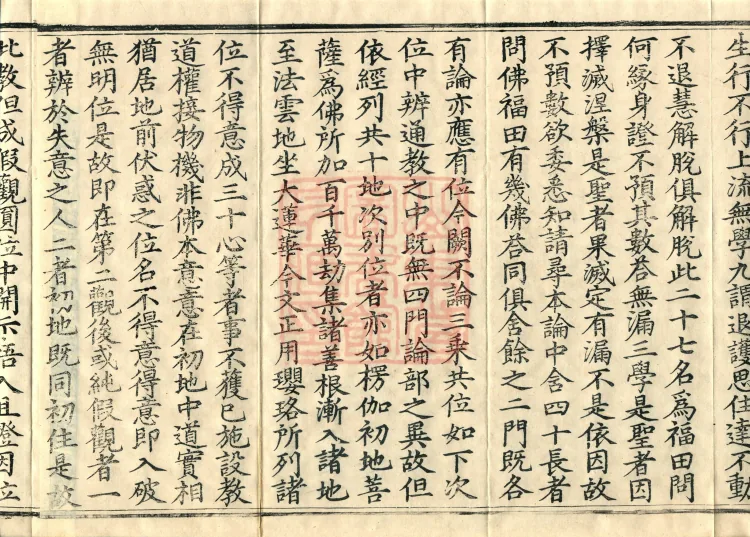 生行不行上流無學九謂退護思住達不動
不退慧解脫俱解脫此二十七名為福田問
何緣身證不預其數答無漏三學是聖者因
擇滅涅槃是聖者果滅定有漏不是依因故
不預數欲委悉知請尋本論中舍四十長者
問佛福田有幾佛答同俱舍餘之二門既各
有論亦應有位今闕不論三乘共位如下次
位中辨通教之中既無四門論部之異故但
依經列共十地次別位者亦如楞伽初地菩
薩為佛所加百千萬劫集諸善根漸入諸地
至法雲地坐大蓮華今文正用瓔珞所列諸
位不得意成三十心等者事不獲已施設教
道權接物機非佛本意意在初地中道實相
猶居地前伏惑之位名不得意得意即入破
無明位是故即在第二觀後或純假觀者一
者辨於失意之人二者初地既同初住是故
此教但成假觀圓位中開示悟入且證因位